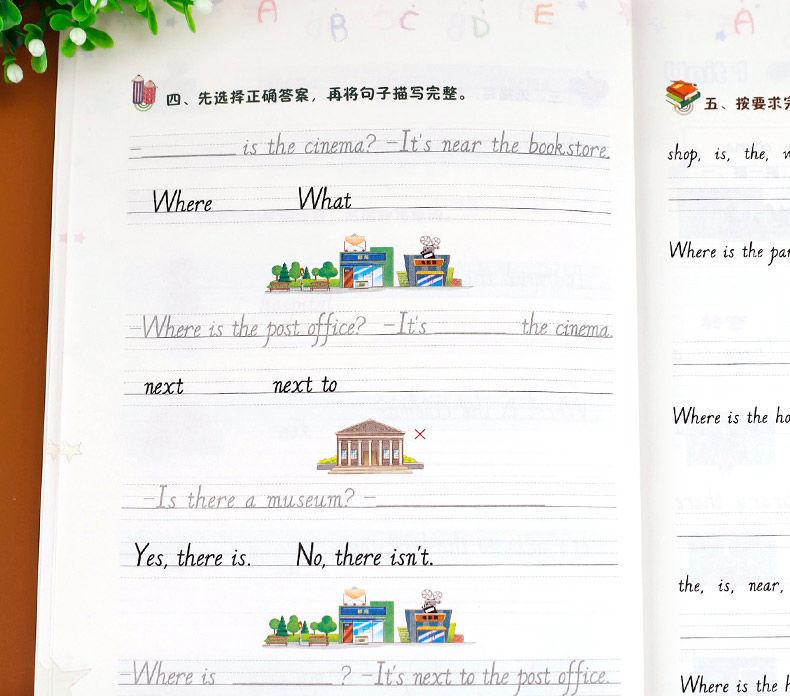 A B C D E
A
四、先选择正确答案，再将句子描写完整。
-________ is the cinema? -It's near the bookstore.
Where What
邮局 电影院
-Where is the post office? -It's ______ the cinema.
next next to
-Is there a museum? -______________
Yes, there is. No, there isn't.
邮局 电影院
-Where is ________ ? -It's next to the post office.
五、按要求
shop, is, the,
Where is the
Where is the
the, is, near,
Where is the